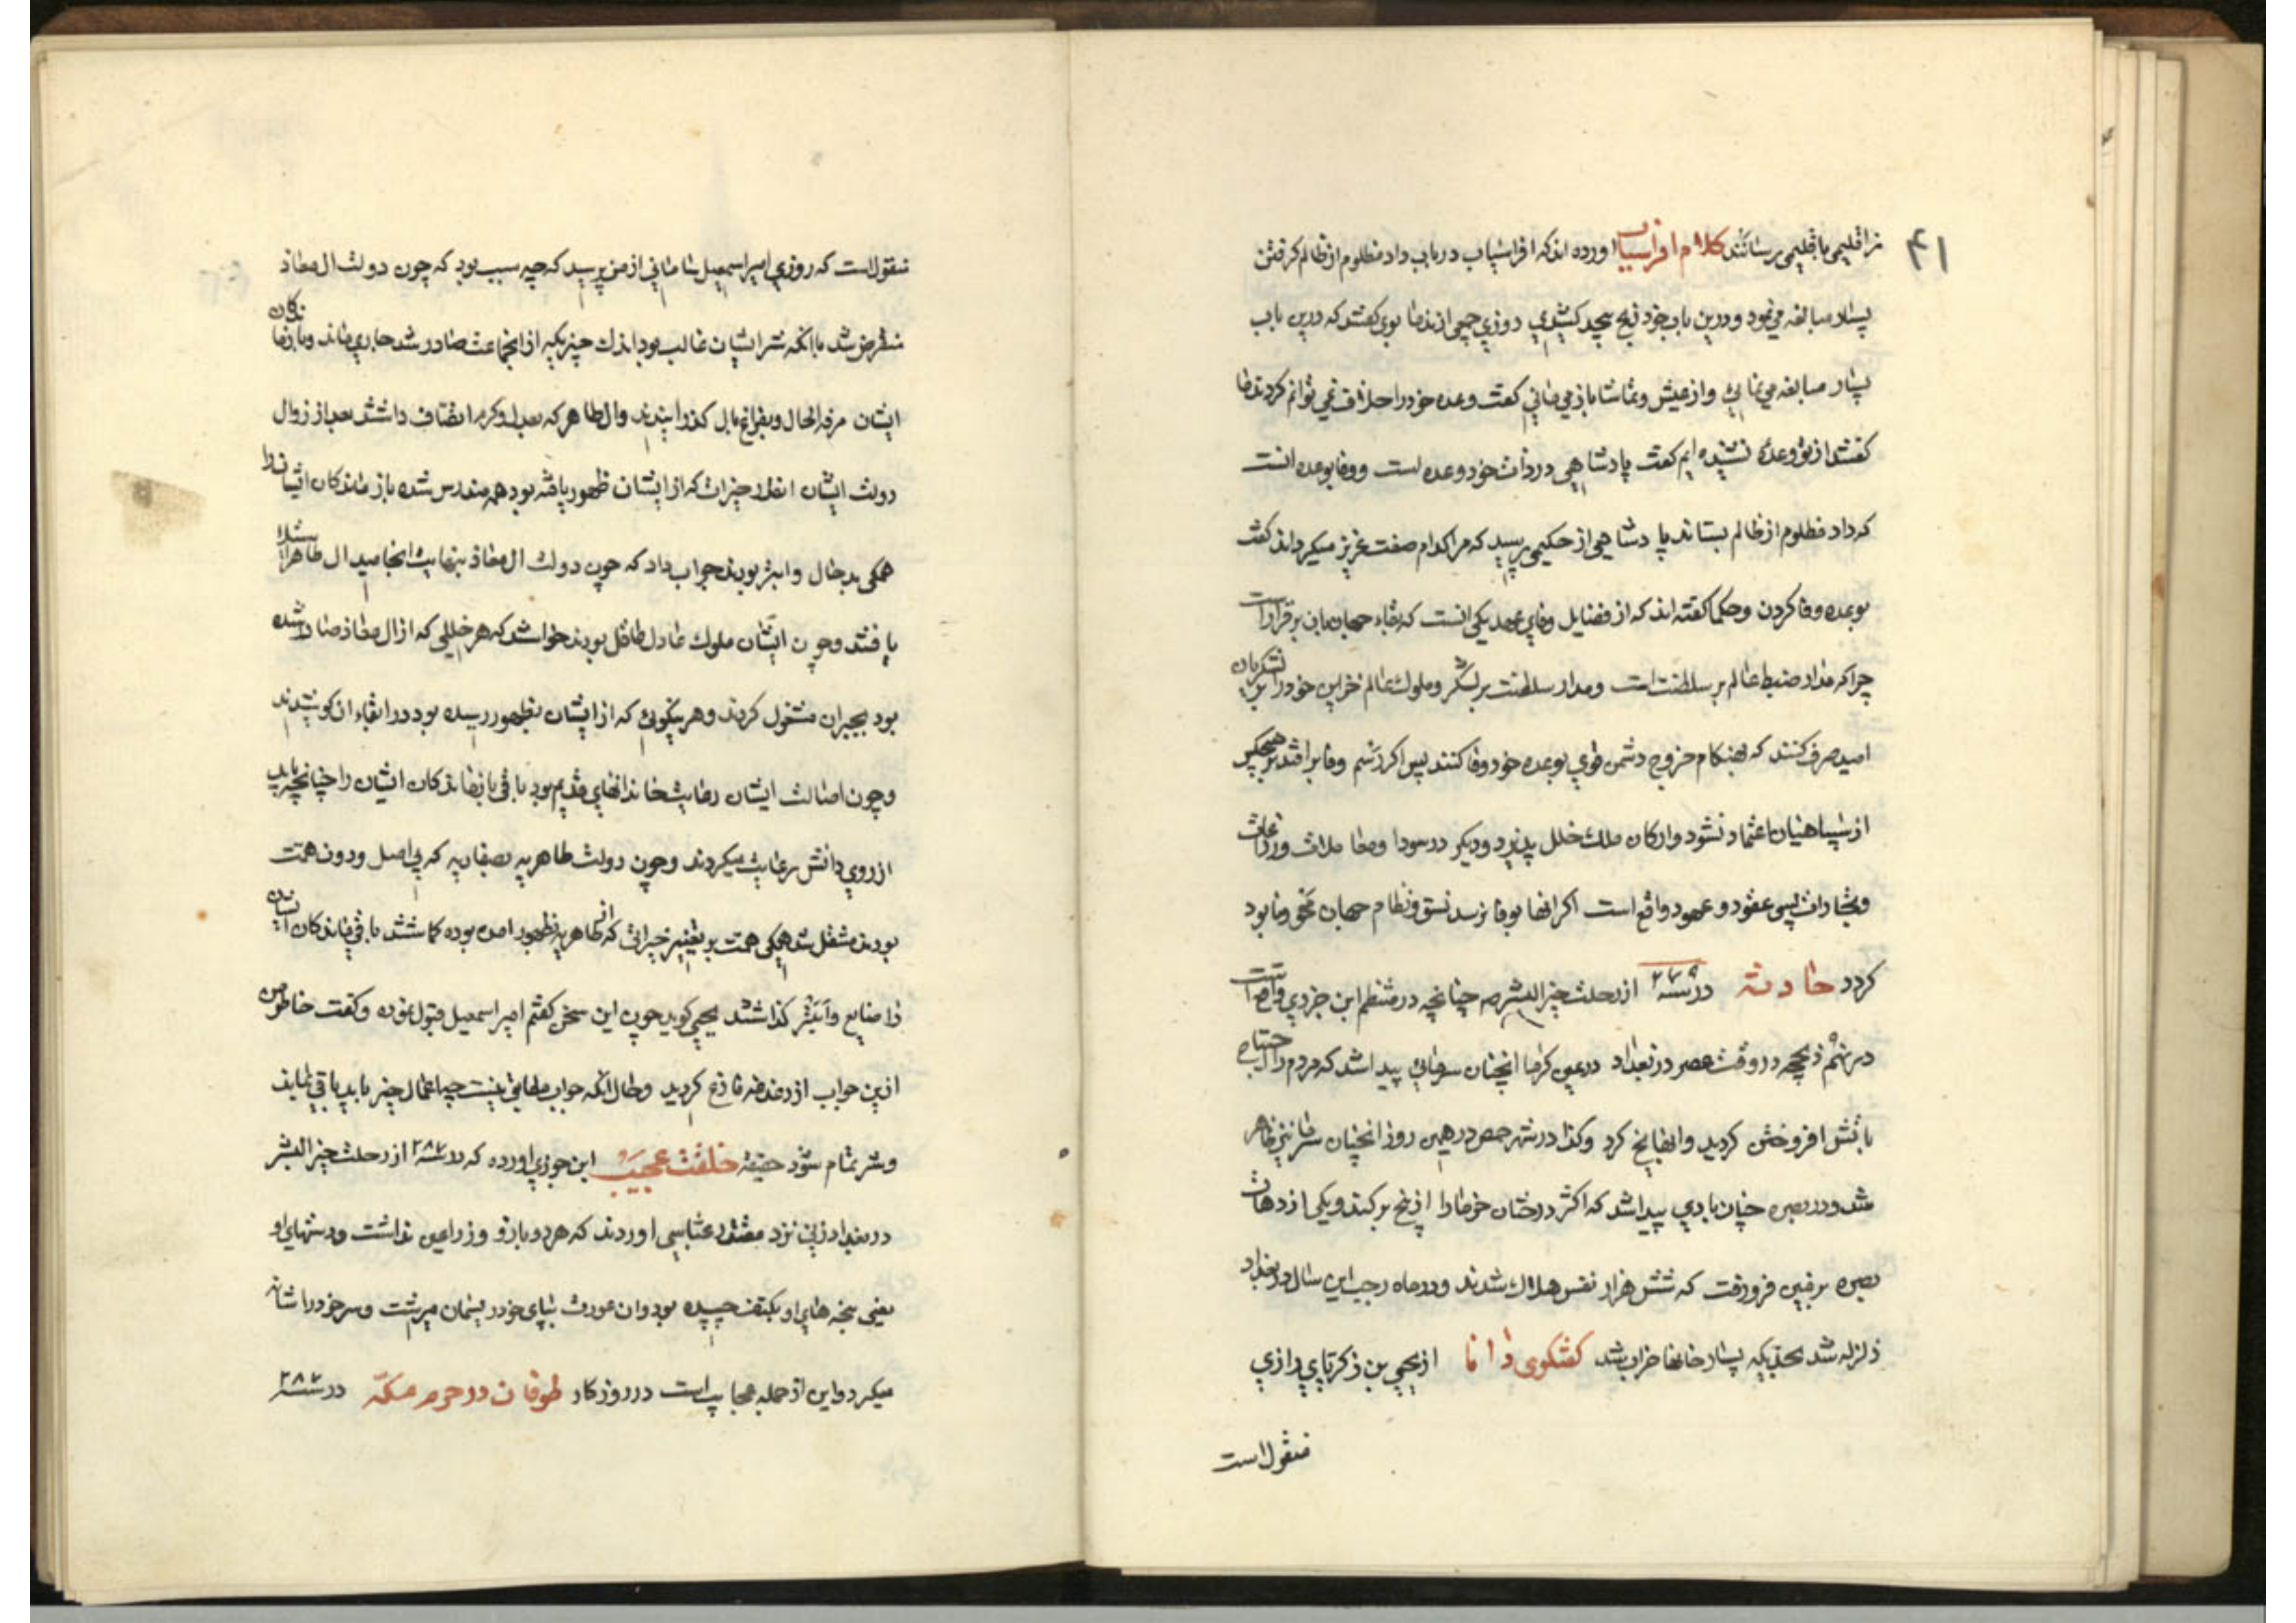 ۴۱
ز اقلیمی باقلیمی برسانند کلام افراسیاب اورده اند که افراسیاب در باب داد مظلوم از ظالم گرفتن
بسیار مبالغه می نمود و درین باب بخود رنج بیحد کشیدی روزی جمعی از ندما بوی گفتند که درین باب
بسیار مبالغه می نمائی و از عیش و تماشا باز می مانی گفت وعده خود را خلاف نمی توانم کرد ندما
گفتند از تو وعدهٔ نشنیده ایم گفت پادشاهی در ذات خود وعده است و وفا بوعده انست
که داد مظلوم از ظالم بستاند پادشاهی از حکیمی پرسید که مرا کدام صفت عزیز میکرداند گفت
بوعده وفا کردن و حکما گفته اند که از فضایل وفای عهد یکی انست که بقاء جهان بان برقرار است
چرا که مدار ضبط عالم بر سلطنت است و مدار سلطنت بر لشکر و ملوک عالم خزاین خود را بر لشکریان
امید صرف کنند که بهنکام خروج دشمن قوی بوعده خود وفا کنند پس اکر رسم وفا بر افتد بر هیچکس
از سپاهیان اعتماد نشود و ارکان ملک خلل پذیرد و دیکر در سودا و معاملات و زراعات
و تجارات بسی عقود و عهود واقع است اکر انها بوفا نرسد نسق و نظام جهان محو و نابود
کردد حادثه در سنه ۲۷۹ از رحلت خیر البشر صه چنانچه در منتظم ابن جوزی واقع است
در نهم ذیحجه در وقت عصر در بغداد در عین کرما انچنان سرمائی پیدا شد که مردم را احتیاج
باتش افروختن کردید و ابها یخ کرد و کذا در شهر حمص در همین روز انچنان سرما نیز ظاهر
شد و در بصره چنان بادی پیدا شد که اکثر درختان خرما را از بیخ بر کند و یکی از دهات
بصره بزمین فرو رفت که شش هزار نفس هلاک شدند و در ماه رجب این سال در بغداد
زلزله شد بحدیکه بسیار خانها خراب شد کفتکوی دانا از یحیی بن زکریای رازی
منقول است
منقول است که روزی امیر اسمعیل سامانی از من پرسید که چه سبب بود که چون دولت ال معاذ
منقرض شد باانکه شر ایشان غالب بود اندک خیریکه از انجماعت صادر شد جاری ماند و بازماندکان
ایشان مرفه الحال و بفراغ بال کذرانیدند و ال طاهر که بعدل و کرم اتصاف داشتند بعد از زوال
دولت ایشان انقدر خیرات که از ایشان ظهور یافته بود همه مندرس شده بازماندکان ایشان را
همکی بدحال و ابتر بودند جواب داد که چون دولت ال معاذ بنهایت انجامید ال طاهر استیلا
یافتند و چون ایشان ملوک عادل عاقل بودند خواستند که هر خللی که از ال معاذ صادر شده
بود بجبران مشغول کردند و هر نیکوئی که از ایشان بظهور رسیده بود در ابقاء ان کوشیدند
و چون اصالت ایشان رعایت خاندانهای قدیم بود باقی بازماندکان ایشان را چنانچه باید
از روی دانش رعایت میکردند و چون دولت طاهریه بصفاریه که بی اصل و دون همت
بودند منتقل شد همکی همت بر تغییر خیراتی که از طاهریه بظهور امده بوده کماشتند باقی ماندکان ایشان
را ضایع و ابتر کذاشتند یحیی کوید چون این سخن کفتم امیر اسمعیل قبول نموده و کفت خاطر من
ازین جواب از دغدغه فارغ کردید و حال انکه جواب مطابق نیست چه اعمال خیر باید باقی بماند
و شر تمام شود حقیقه خلقت عجیب ابن جوزی اورده که در سنه ۲۸۷ از رحلت خیر البشر
در بغداد زنی نزد مقتدر عباسی اوردند که هر دو بازو و ذراعین نداشت و دستهای او
یعنی پنجه های او بکتف چسپیده بود و ان عورت بپای خود ریسمان میرشت و سر خود را شانه
میکرد و این از جمله عجایب است در روزکار طوفان در حرم مکه در سنه ۲۸۷